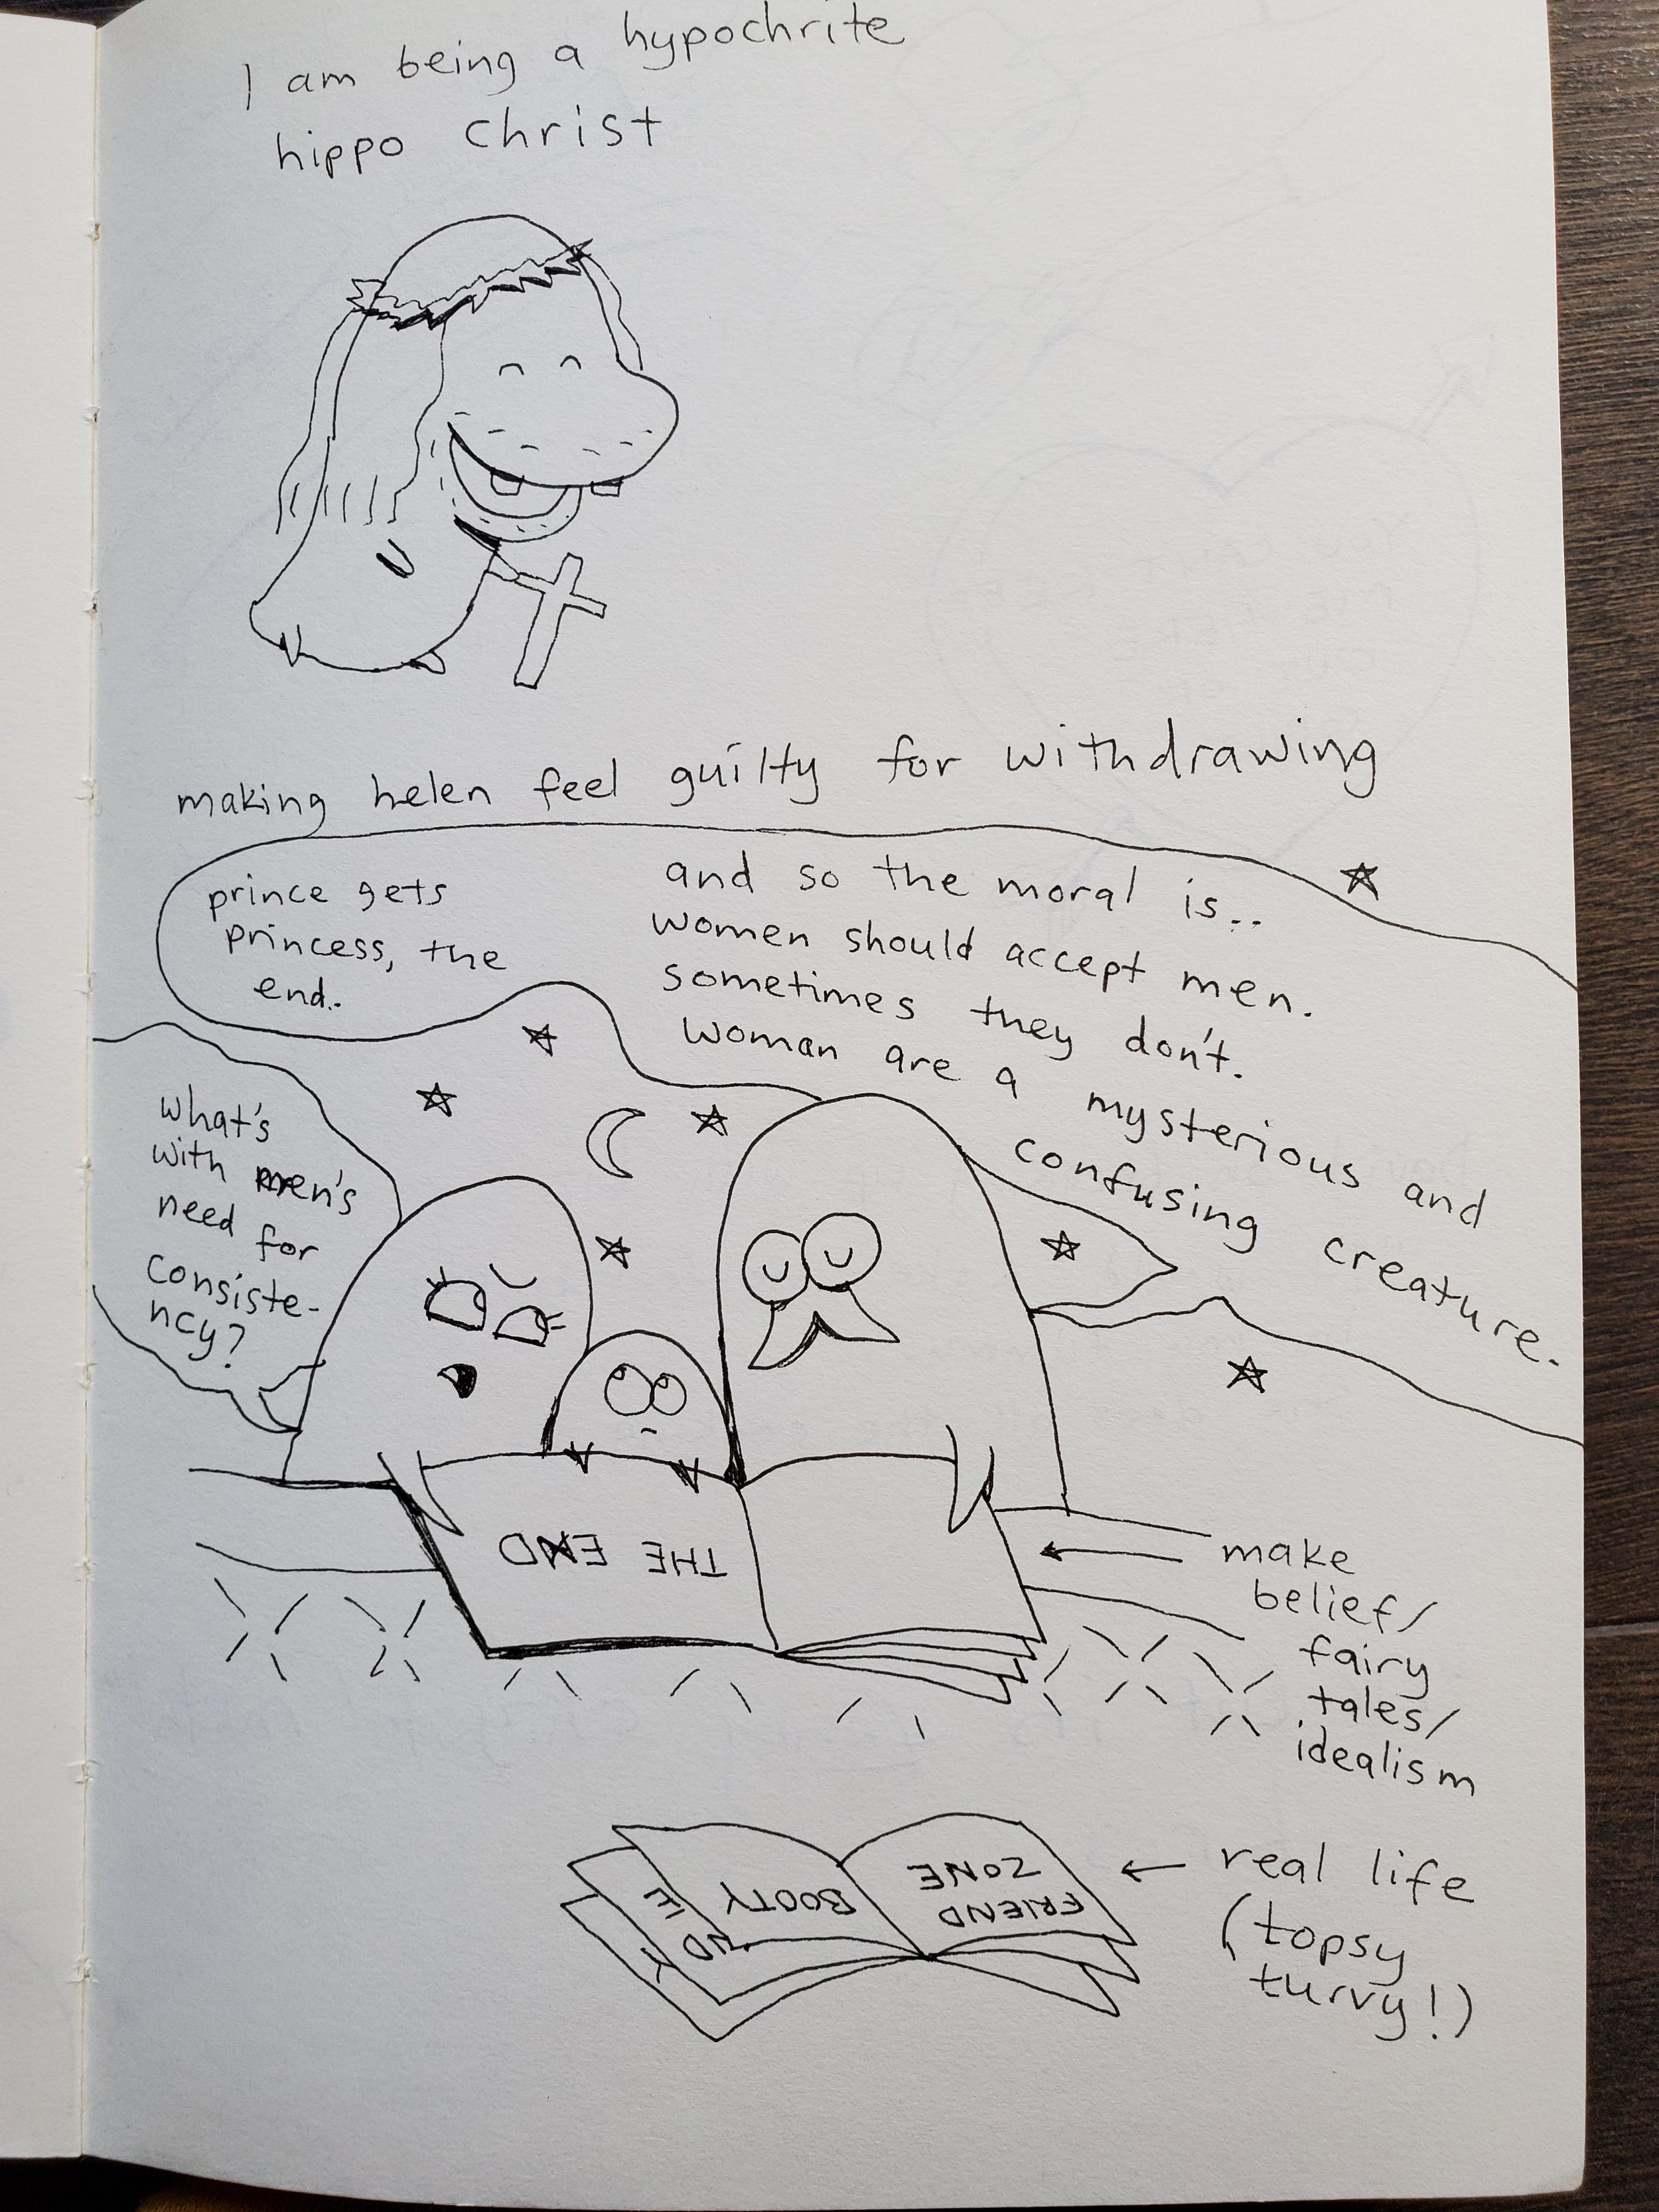 I am being a hypochrite
hippo Christ
making helen feel guilty for withdrawing
prince gets
princess, the
end..
and so the moral is...
women should accept men.
sometimes they don't.
woman are a mysterious and
confusing creature.
what's
with men's
need for
consiste-
ncy?
THE END
make
belief/
fairy
tales/
idealism
FRIEND
ZONE
BOOTY
real life
(topsy
turvy!)